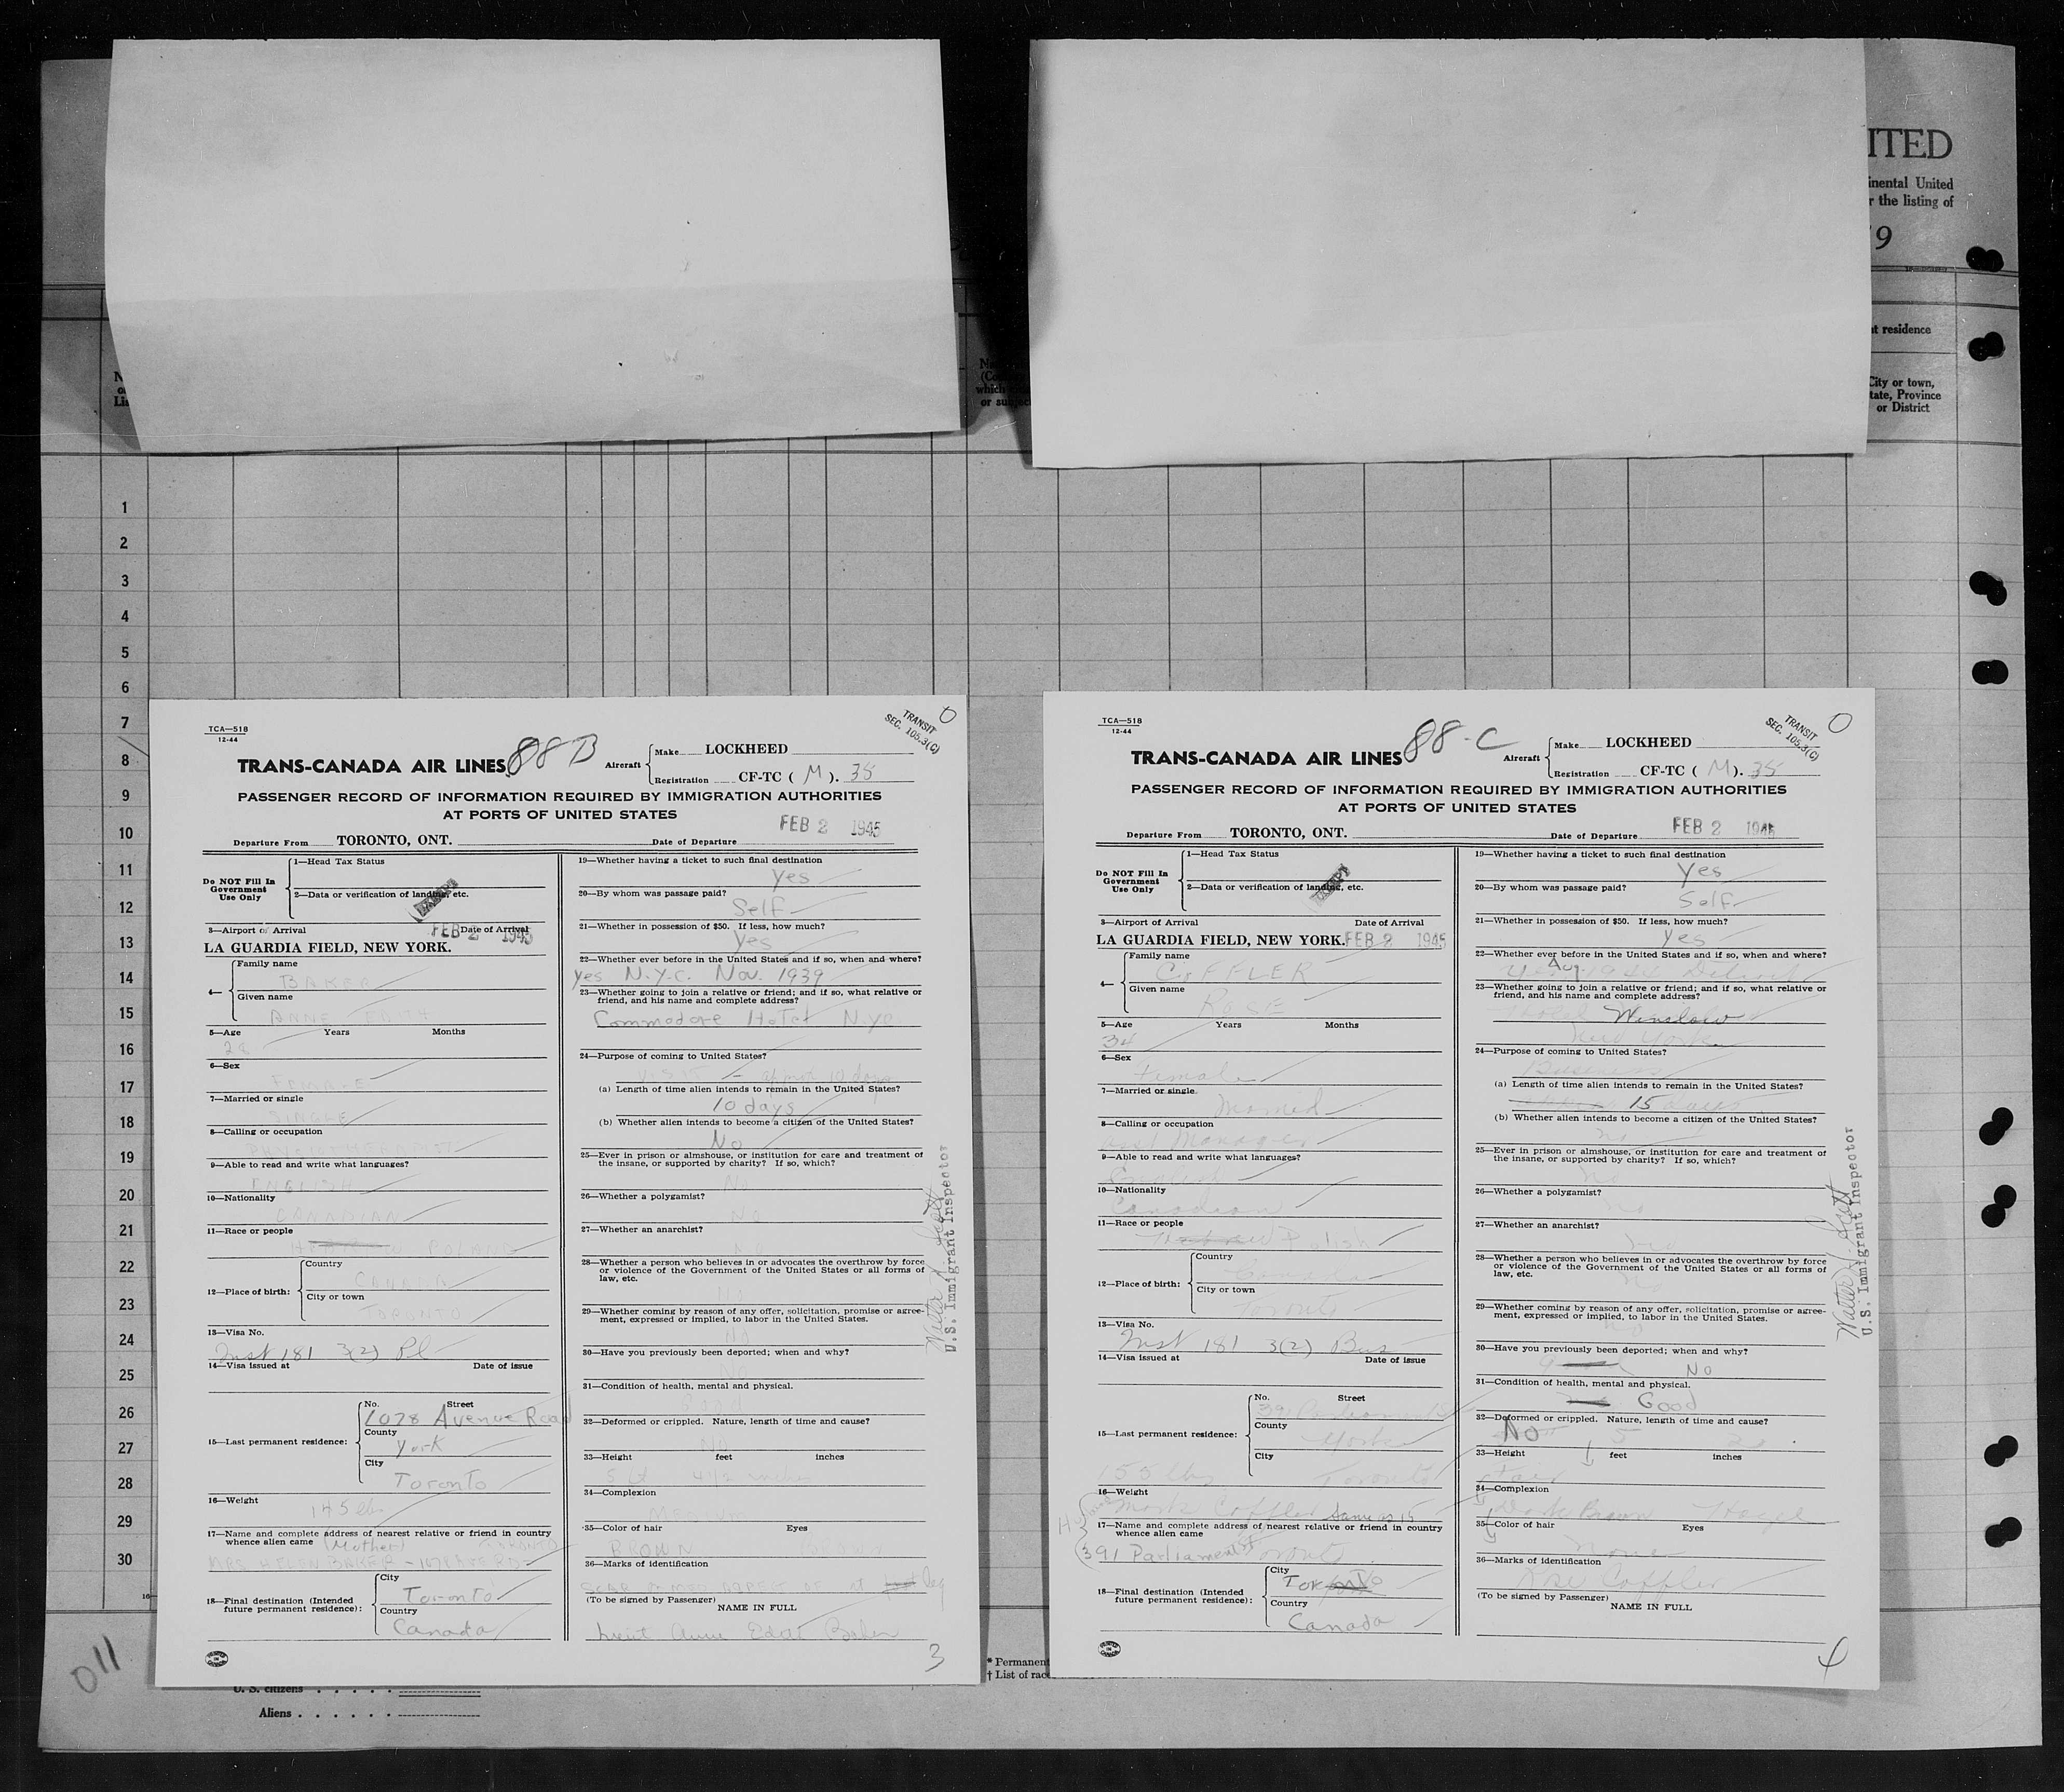 ITED
inental United
r the listing of
9
t residence
City or town,
tate, Province
or District
1
2
3
4
5
6
7
8
9
10
11
12
13
14
15
16
17
18
19
20
21
22
23
24
25
26
27
28
29
30
TCA—518
12-44
TRANSIT
SEC. 105.3(C)
0
TRANS-CANADA AIR LINES 88 B
Aircraft
Make LOCKHEED
Registration CF-TC ( M ). 35
PASSENGER RECORD OF INFORMATION REQUIRED BY IMMIGRATION AUTHORITIES
AT PORTS OF UNITED STATES
Departure From TORONTO, ONT. Date of Departure FEB 2 1945
Do NOT Fill In
Government
Use Only
1—Head Tax Status
2—Data or verification of landing, etc.
3—Airport of Arrival Date of Arrival
LA GUARDIA FIELD, NEW YORK. FEB 2 1945
4—
Family name
BAKER
Given name
ANNE EDITH
5—Age Years Months
28
6—Sex
FEMALE
7—Married or single
SINGLE
8—Calling or occupation
9—Able to read and write what languages?
ENGLISH
10—Nationality
CANADIAN
11—Race or people
POLAND
12—Place of birth:
Country
CANADA
City or town
TORONTO
13—Visa No.
Inst 181 3(2) Pl
14—Visa issued at Date of issue
15—Last permanent residence:
No. Street
1078 Avenue Road
County
York
City
Toronto
16—Weight
145 lbs
17—Name and complete address of nearest relative or friend in country
whence alien came (Mother) TORONTO
MRS HELEN BAKER - 1078 AVE RD
18—Final destination (Intended
future permanent residence):
City
Toronto
Country
Canada
19—Whether having a ticket to such final destination
Yes
20—By whom was passage paid?
Self
21—Whether in possession of $50. If less, how much?
Yes
22—Whether ever before in the United States and if so, when and where?
Yes N.Y.C. Nov. 1939
23—Whether going to join a relative or friend; and if so, what relative or
friend, and his name and complete address?
Commodore Hotel N.Y.C.
24—Purpose of coming to United States?
VISIT
(a) Length of time alien intends to remain in the United States?
10 days
(b) Whether alien intends to become a citizen of the United States?
No
25—Ever in prison or almshouse, or institution for care and treatment of
the insane, or supported by charity? If so, which?
No
26—Whether a polygamist?
No
27—Whether an anarchist?
No
28—Whether a person who believes in or advocates the overthrow by force
or violence of the Government of the United States or all forms of
law, etc.
No
29—Whether coming by reason of any offer, solicitation, promise or agree-
ment, expressed or implied, to labor in the United States.
No
30—Have you previously been deported; when and why?
31—Condition of health, mental and physical.
Good
32—Deformed or crippled. Nature, length of time and cause?
No
33—Height feet inches
5 ft 4 1/2 inches
34—Complexion
35—Color of hair Eyes
BROWN
36—Marks of identification
(To be signed by Passenger)
NAME IN FULL
Lieut Anne Edith Baker
Walter J. Scott
U.S. Immigrant Inspector
3
TCA—518
12-44
TRANSIT
SEC. 105.3(C)
0
TRANS-CANADA AIR LINES 88-C
Aircraft
Make LOCKHEED
Registration CF-TC ( M ). 35
PASSENGER RECORD OF INFORMATION REQUIRED BY IMMIGRATION AUTHORITIES
AT PORTS OF UNITED STATES
Departure From TORONTO, ONT. Date of Departure FEB 2 1945
Do NOT Fill In
Government
Use Only
1—Head Tax Status
2—Data or verification of landing, etc.
3—Airport of Arrival Date of Arrival
LA GUARDIA FIELD, NEW YORK. FEB 2 1945
4—
Family name
COFFLER
Given name
ROSE
5—Age Years Months
34
6—Sex
Female
7—Married or single
Married
8—Calling or occupation
Asst Manager
9—Able to read and write what languages?
English
10—Nationality
Canadian
11—Race or people
Polish
12—Place of birth:
Country
Canada
City or town
Toronto
13—Visa No.
Inst 181 3(2) Bus
14—Visa issued at Date of issue
15—Last permanent residence:
No. Street
County
York
City
Toronto
155 lbs
16—Weight
Coffler Same as 15
17—Name and complete address of nearest relative or friend in country
whence alien came
391 Parliament St Toronto
18—Final destination (Intended
future permanent residence):
City
Toronto
Country
Canada
19—Whether having a ticket to such final destination
Yes
20—By whom was passage paid?
Self
21—Whether in possession of $50. If less, how much?
Yes
22—Whether ever before in the United States and if so, when and where?
Yes Aug 1944 Detroit
23—Whether going to join a relative or friend; and if so, what relative or
friend, and his name and complete address?
Hotel Winslow
New York
24—Purpose of coming to United States?
Business
(a) Length of time alien intends to remain in the United States?
15 days
(b) Whether alien intends to become a citizen of the United States?
No
25—Ever in prison or almshouse, or institution for care and treatment of
the insane, or supported by charity? If so, which?
No
26—Whether a polygamist?
No
27—Whether an anarchist?
No
28—Whether a person who believes in or advocates the overthrow by force
or violence of the Government of the United States or all forms of
law, etc.
29—Whether coming by reason of any offer, solicitation, promise or agree-
ment, expressed or implied, to labor in the United States.
No
30—Have you previously been deported; when and why?
No
31—Condition of health, mental and physical.
Good
32—Deformed or crippled. Nature, length of time and cause?
No
33—Height feet inches
Fair
34—Complexion
Dark Brown Hazel
35—Color of hair Eyes
none
36—Marks of identification
Rose Coffler
(To be signed by Passenger)
NAME IN FULL
Walter J. Scott
U.S. Immigrant Inspector
4
011
U. S. citizens
Aliens
* Permanent
† List of rac